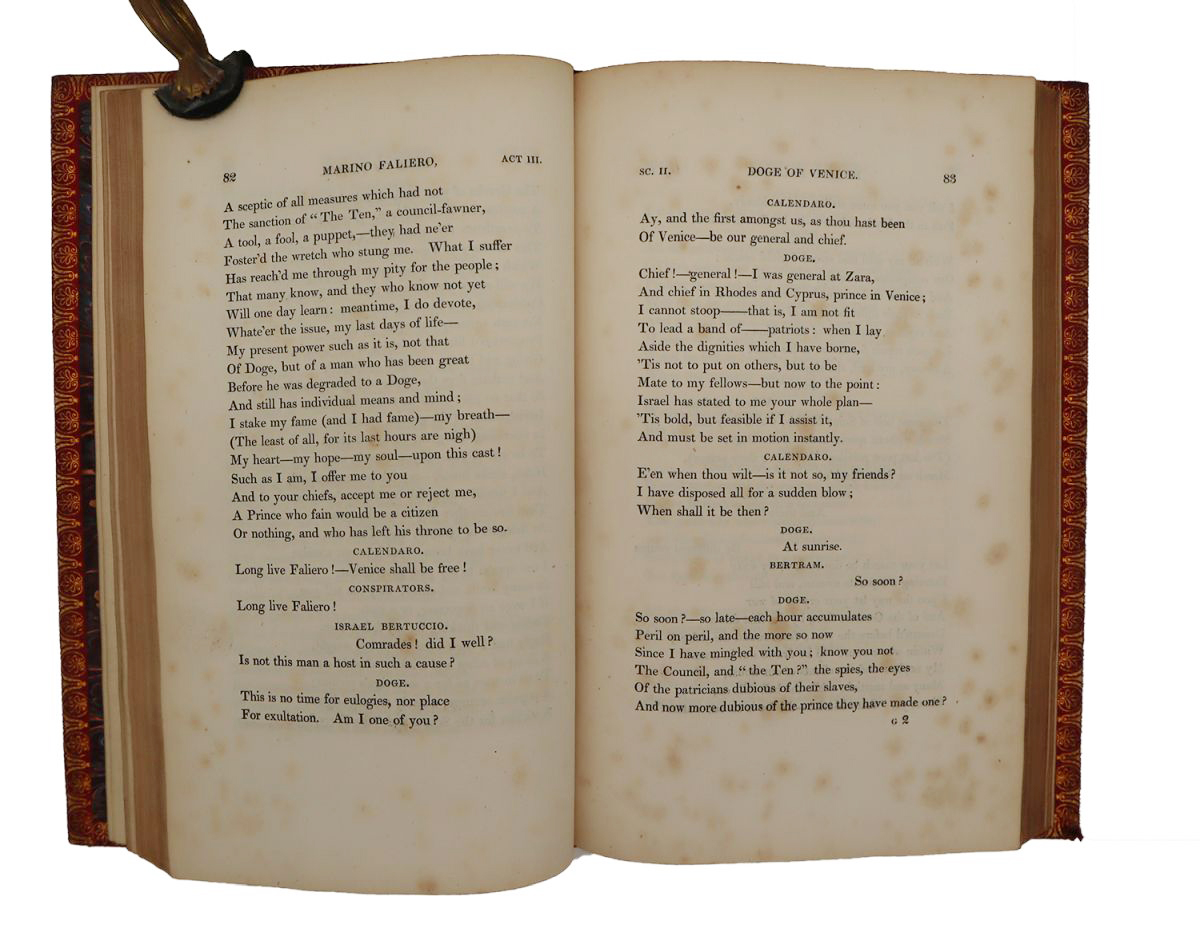 82 MARINO FALIERO, ACT III.
A sceptic of all measures which had not
The sanction of “ The Ten,” a council-fawner,
A tool, a fool, a puppet,—they had ne'er
Foster'd the wretch who stung me. What I suffer
Has reach'd me through my pity for the people ;
That many know, and they who know not yet
Will one day learn : meantime, I do devote,
Whate'er the issue, my last days of life—
My present power such as it is, not that
Of Doge, but of a man who has been great
Before he was degraded to a Doge,
And still has individual means and mind ;
I stake my fame (and I had fame)—my breath—
(The least of all, for its last hours are nigh)
My heart—my hope—my soul—upon this cast !
Such as I am, I offer me to you
And to your chiefs, accept me or reject me,
A Prince who fain would be a citizen
Or nothing, and who has left his throne to be so.
CALENDARO.
Long live Faliero !—Venice shall be free !
CONSPIRATORS.
Long live Faliero !
ISRAEL BERTUCCIO.
Comrades ! did I well ?
Is not this man a host in such a cause ?
DOGE.
This is no time for eulogies, nor place
For exultation. Am I one of you ?
SC. II. DOGE OF VENICE. 83
CALENDARO.
Ay, and the first amongst us, as thou hast been
Of Venice—be our general and chief.
DOGE.
Chief !—general !—I was general at Zara,
And chief in Rhodes and Cyprus, prince in Venice ;
I cannot stoop——that is, I am not fit
To lead a band of——patriots : when I lay
Aside the dignities which I have borne,
'Tis not to put on others, but to be
Mate to my fellows—but now to the point :
Israel has stated to me your whole plan—
'Tis bold, but feasible if I assist it,
And must be set in motion instantly.
CALENDARO.
E'en when thou wilt—is it not so, my friends ?
I have disposed all for a sudden blow ;
When shall it be then ?
DOGE.
At sunrise.
BERTRAM.
So soon ?
DOGE.
So soon ?—so late—each hour accumulates
Peril on peril, and the more so now
Since I have mingled with you ; know you not
The Council, and “ the Ten ?” the spies, the eyes
Of the patricians dubious of their slaves,
And now more dubious of the prince they have made one ?
G 2